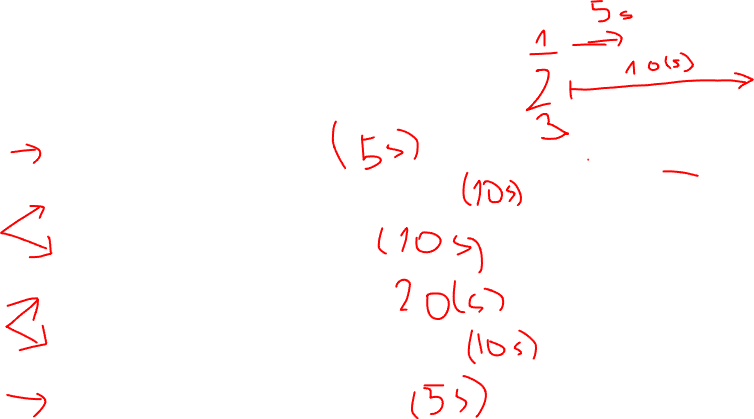 5s
1
10(s)
2
3
(5s)
(10s)
(10s)
20(s)
(10s)
(5s)